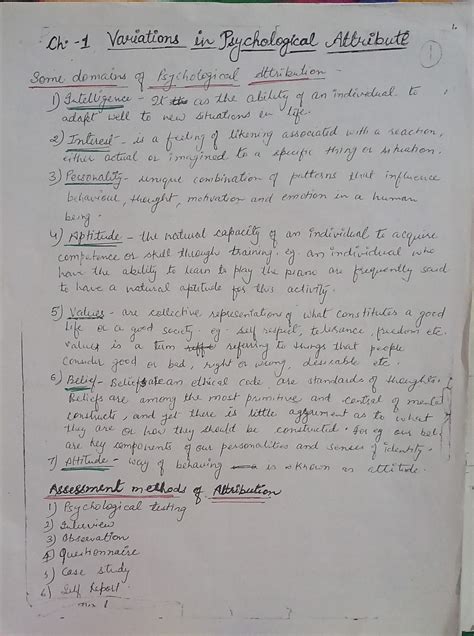 Ch:-1 Variations in Psychological Attribute
1
Some domains of Psychological Attribution -
1) Intelligence - It is the ability of an individual to
adapt well to new situations in life.
2) Interest - is a feeling of likening associated with a reaction,
either actual or imagined to a specific thing or situation.
3) Personality - unique combination of patterns that influence
behaviour, thought, motivation and emotion in a human
being.
4) Aptitude - the natural capacity of an individual to acquire
competence or skill through training. eg. an individual who
have the ability to learn to play the piano are frequently said
to have a natural aptitude for this activity.
5) Values - are collective representations of what constitutes a good
life or a good society. eg. self respect, tolerance, freedom etc.
values is a term referring to things that people
consider good or bad, right or wrong, desirable etc.
6) Belief - Beliefs are an ethical code, are standards of thoughts.
Beliefs are among the most primitive and central of mental
constructs, and yet there is little agreement as to what
they are or how they should be constructed. for eg our bel
are key components of our personalities and senses of identity.
7) Attitude - way of behaving is known as attitude.
Assessment methods of Attribution
1) Psychological testing
2) Interview
3) Observation
4) Questionnaire
5) Case study
6) Self Report